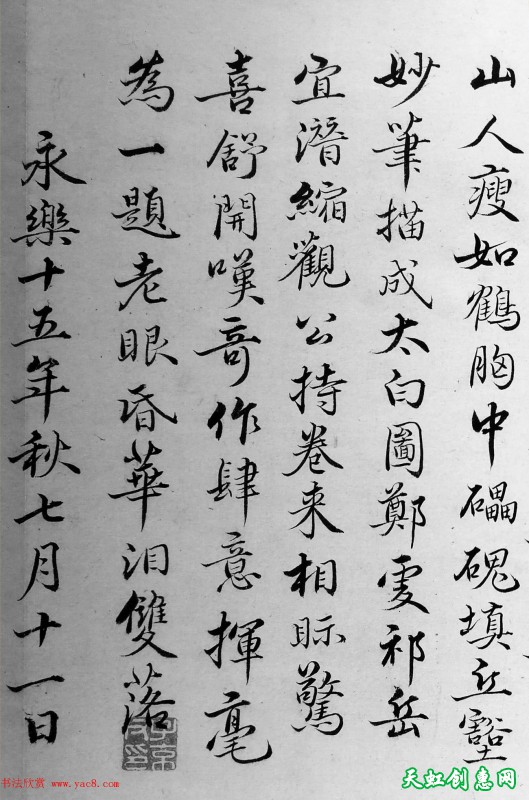 山人瘦如鶴胸中礧磈填丘壑
妙筆描成太白圖鄭虔祁岳
宜潛縮觀公持卷来相眎驚
喜舒開嘆竒作肆意揮毫
為一題老眼昏華泪雙落
永樂十五年秋七月十一日
书法欣赏 www.yac8.com
天虹创惠网